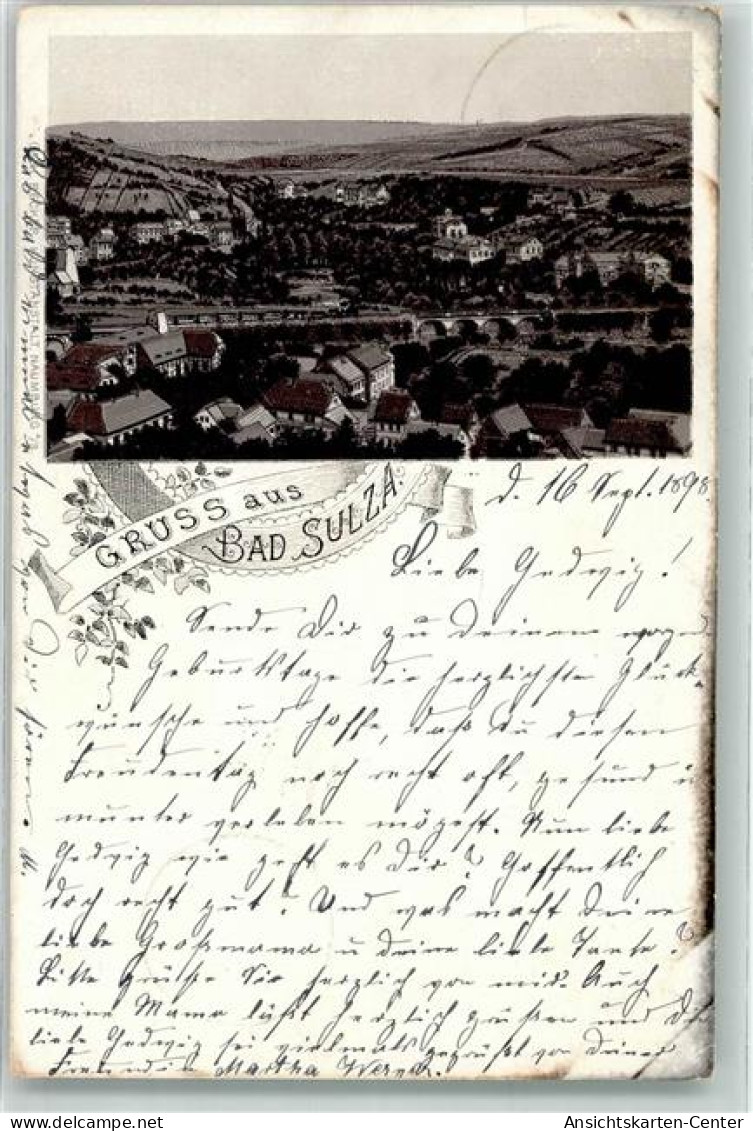 GRUSS aus
BAD SULZA.
d. 16 Sept. 1898.
Liebe Hedwig!
Sende Dir zu Deinem
Geburtstage die herzlichsten Glück-
wünsche und hoffe, daß Du diesen
Freudentag noch recht oft, gesund u
munter verleben mögest. Nun liebe
Hedwig wie geht es Dir? Hoffentlich
doch recht gut! Und was macht Deine
liebe Großmama u deine liebe Tante?
Bitte grüße Sie herzlich von mir. Auch
meine Mama läßt herzlich grüßen und Du
liebe Hedwig sei vielmals gegrüßt von Deiner
Freundin Martha Werner.
ANSTALT NAUMBURG
Ansichtskarten-Center